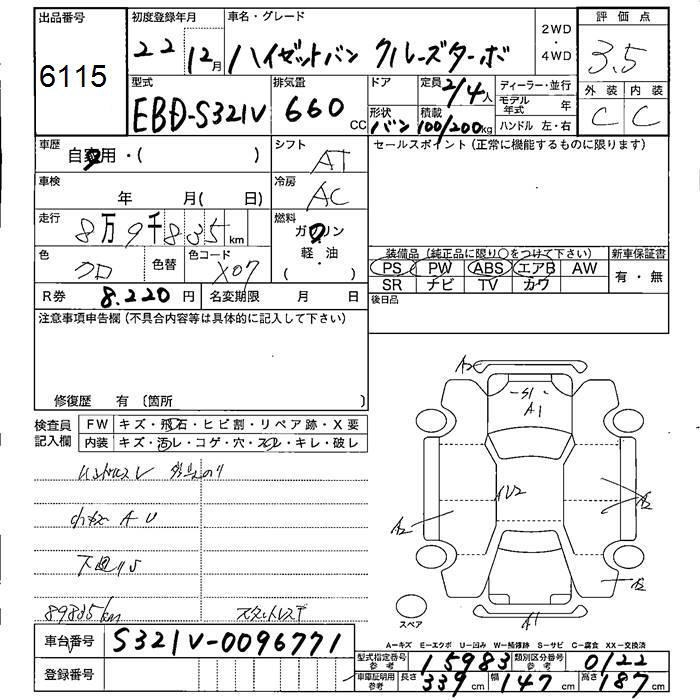 出品番号
6115
初度登録年月
22 12月
車名・グレード
ハイゼットバン クルーズターボ
2WD
・
4WD
評価点
3.5
型式
EBD-S321V
排気量
660 CC
ドア
定員
2/4人
ディーラー・並行
モデル年式 年
ハンドル 左・右
形状
バン
積載
100/200kg
外装 内装
C C
車歴
自家用・( )
シフト
AT
セールスポイント(正常に機能するものに限ります)
車検
年 月( 日)
冷房
AC
走行
8万9千835km
燃料
ガソリン
軽・油
( )
色
クロ
色替
色コード
X07
装備品(純正品に限り○をつけて下さい)
PS PW ABS エアB AW
SR ナビ TV カワ
新車保証書
有・無
R券 8.220円
名変期限 月 日
後日品
注意事項申告欄(不具合内容等は具体的に記入して下さい)
修復歴 有〔箇所 〕
検査員記入欄
FW キズ・飛石・ヒビ割・リペア跡・X要
内装 キズ・汚レ・コゲ・穴・スレ・キレ・破レ
A U
89835km
A2
S1
A1
A2
A2
A2
A1
スペア
A-キズ E-エクボ U-凹み W-補修跡 S-サビ C-腐食 XX-交換済
車台番号 S321V-0096771
登録番号
型式指定番号 参考 15983
類別区分番号 参考 0122
車庫証明用 参考 長さ 339cm 幅 147cm 高さ 187cm